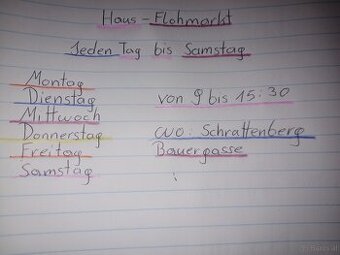 Haus - Flohmarkt
Jeden Tag bis Samstag
Montag
Dienstag
Mittwoch
Donnerstag
Freitag
Samstag
von 9 bis 15:30
wo: Schrattenberg
Bauergasse